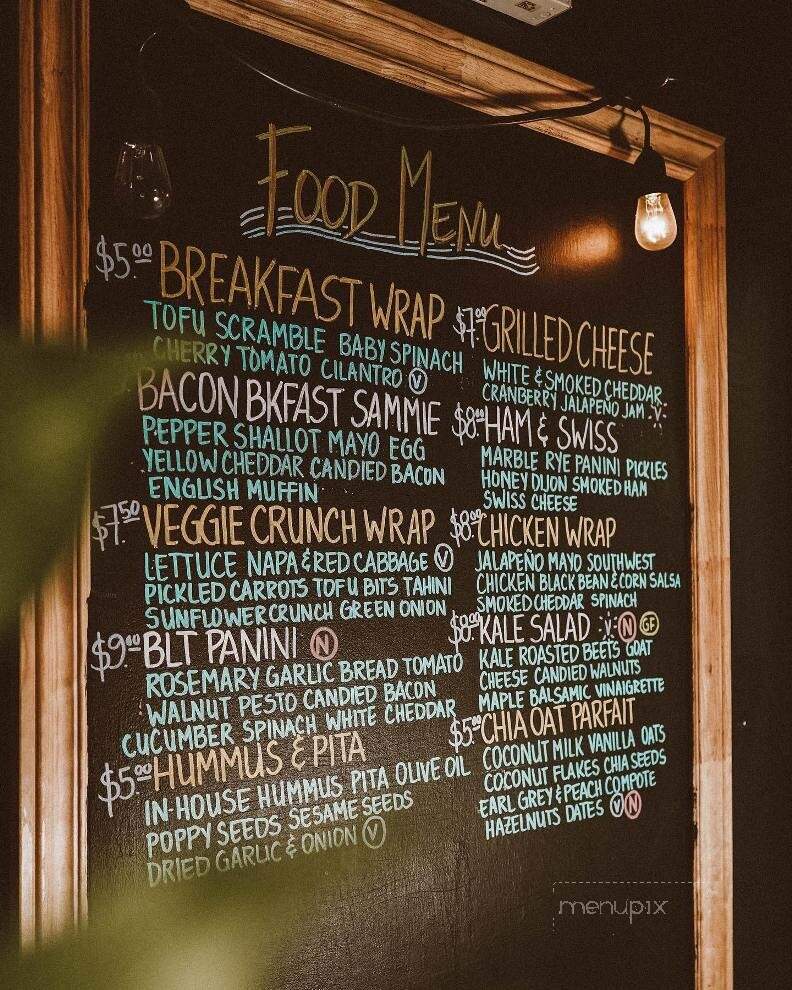 FOOD MENU
$5.00 BREAKFAST WRAP
TOFU SCRAMBLE BABY SPINACH
CHERRY TOMATO CILANTRO V
BACON BKFAST SAMMIE
PEPPER SHALLOT MAYO EGG
YELLOW CHEDDAR CANDIED BACON
ENGLISH MUFFIN
$7.50 VEGGIE CRUNCH WRAP
LETTUCE NAPA & RED CABBAGE V
PICKLED CARROTS TOFU BITS TAHINI
SUNFLOWER CRUNCH GREEN ONION
$9.00 BLT PANINI N
ROSEMARY GARLIC BREAD TOMATO
WALNUT PESTO CANDIED BACON
CUCUMBER SPINACH WHITE CHEDDAR
$5.00 HUMMUS & PITA
IN-HOUSE HUMMUS PITA OLIVE OIL
POPPY SEEDS SESAME SEEDS
DRIED GARLIC & ONION V
$7.00 GRILLED CHEESE
WHITE & SMOKED CHEDDAR
CRANBERRY JALAPEÑO JAM V
$8.00 HAM & SWISS
MARBLE RYE PANINI PICKLES
HONEY DIJON SMOKED HAM
SWISS CHEESE
$8.00 CHICKEN WRAP
JALAPEÑO MAYO SOUTHWEST
CHICKEN BLACK BEAN & CORN SALSA
SMOKED CHEDDAR SPINACH
$8.00 KALE SALAD V N GF
KALE ROASTED BEETS GOAT
CHEESE CANDIED WALNUTS
MAPLE BALSAMIC VINAIGRETTE
$5.00 CHIA OAT PARFAIT
COCONUT MILK VANILLA OATS
COCONUT FLAKES CHIA SEEDS
EARL GREY & PEACH COMPOTE
HAZELNUTS DATES V N
menupix